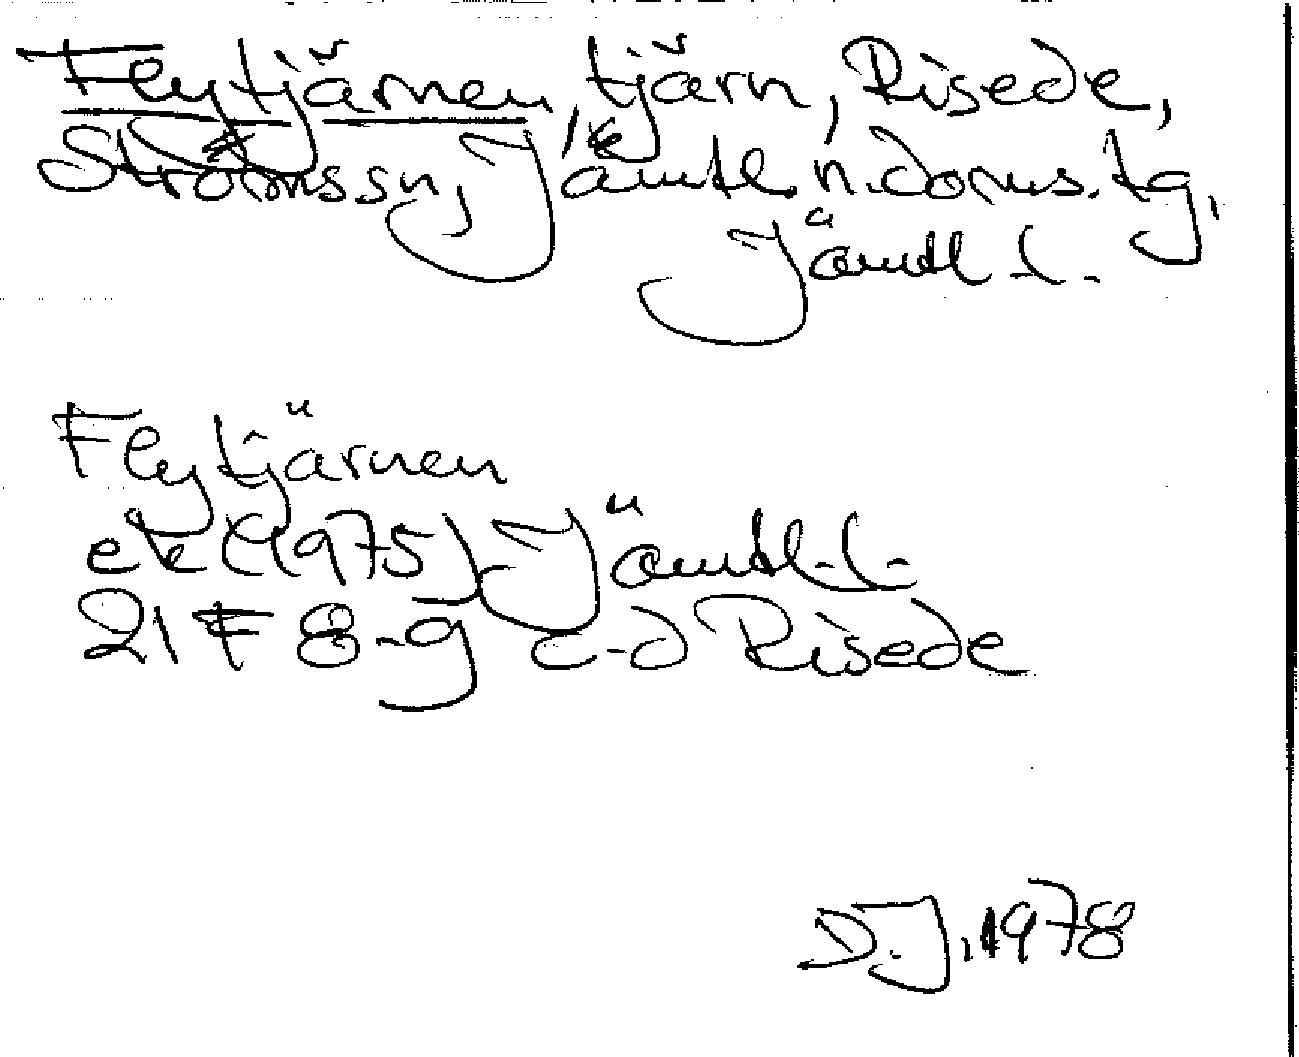 Flytjärnen, tjärn, Risede,
Ströms sn, Jämtl. n. doms. tg,
Jämtl l.
Flytjärnen
ek (1975) Jämtl. l.
21 F 8-9 c-d Risede
D.J. 1978